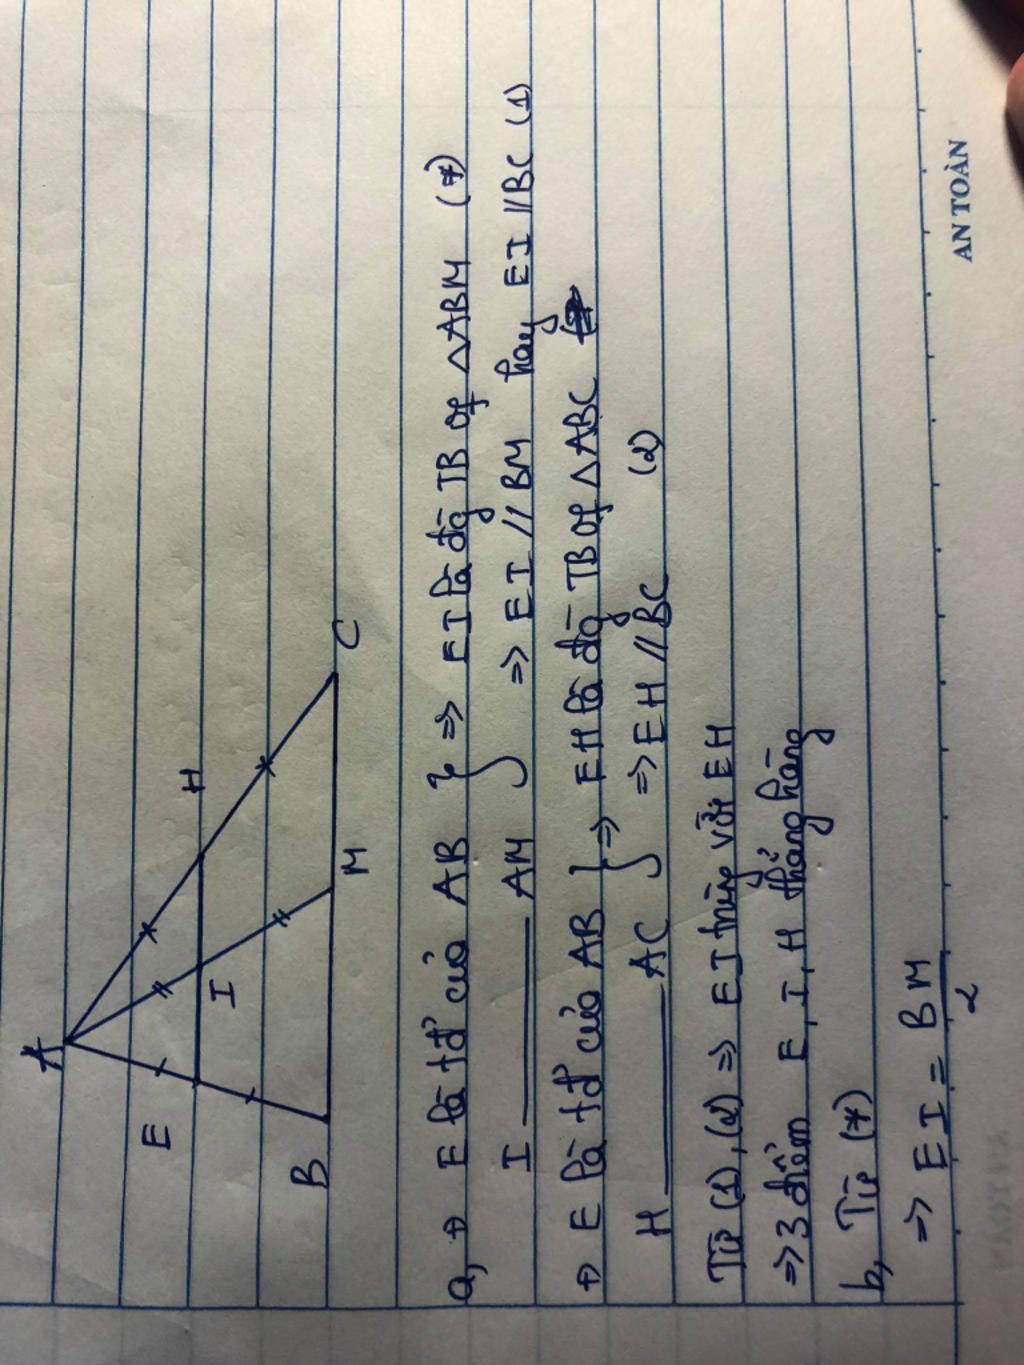 A
E
H
I
B
M
C
a, + E là tđ' của AB } => EI là đg TB of △ABM (*)
I ——— AM => EI // BM hay EI // BC (1)
+ E là tđ' của AB } => EH là đg TB of △ABC
H ——— AC => EH // BC (2)
Từ (1), (2) => EI trùng với EH
=> 3 điểm E, I, H thẳng hàng
b, Từ (*)
=> EI = BM/2
AN TOÀN